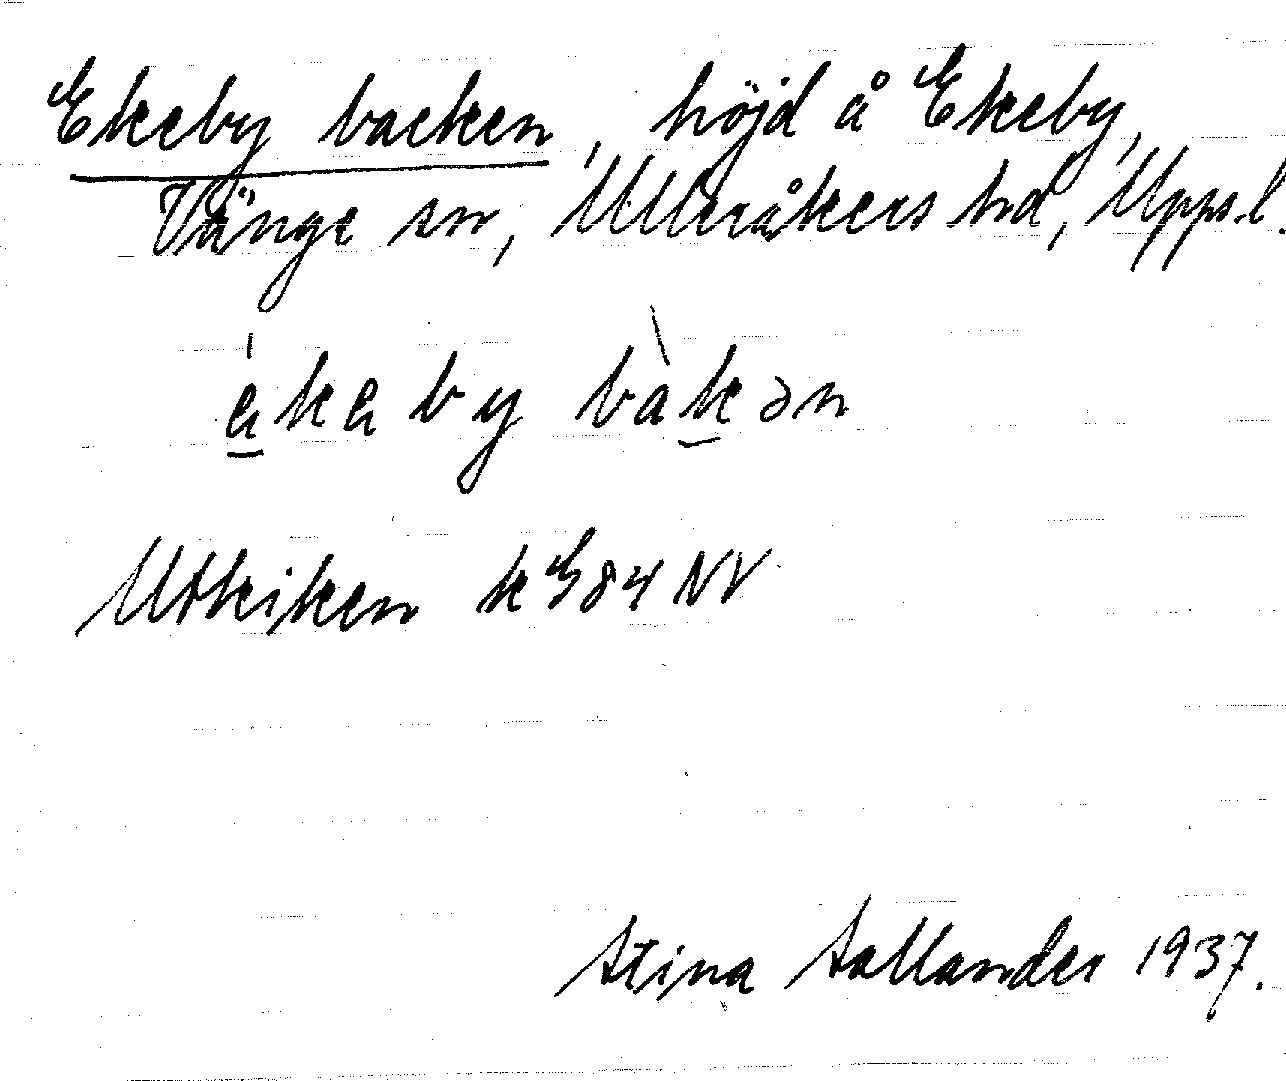 Ekeby backen, höjd å Ekeby,
Vänge sn, Ulleråkers hd, Upps.l.
by bàkən
Utkiken k G84 NV
Stina Sallander 1937.